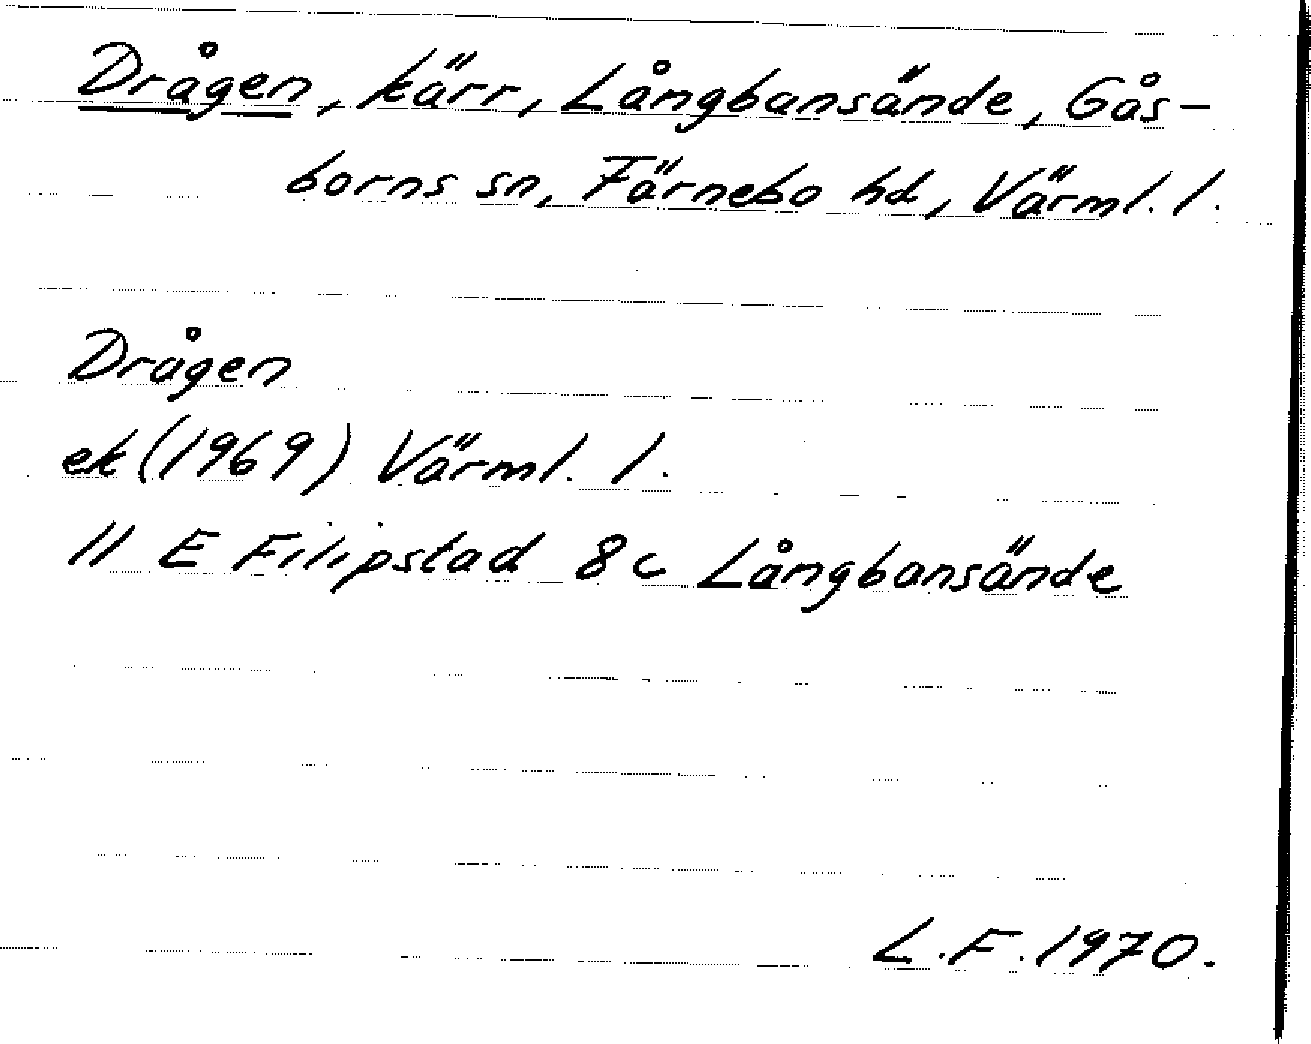 Drågen, kärr, Långbansände, Gås-
borns sn, Färnebo hd, Värml. l.
Drågen
ek (1969) Värml. l.
11 E Filipstad 8 c Långbansände
L.F. 1970.